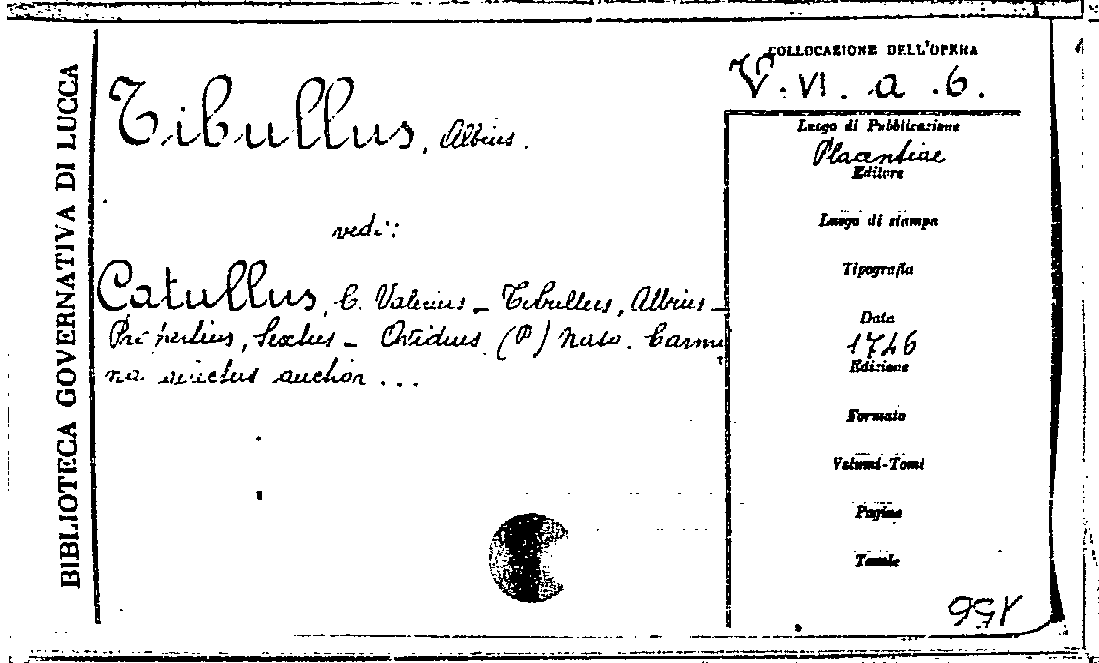 BIBLIOTECA GOVERNATIVA DI LUCCA
COLLOCAZIONE DELL'OPERA
V. VI. a. 6.
Tibullus, Albius.
vedi:
Catullus, C. Valerius - Tibullus, Albius -
Propertius, Sextus - Ovidius (P) Naso. Carmi
na auchor ...
Luogo di Pubblicazione
Placentiae
Editore
Luogo di stampa
Tipografia
Data
1746
Edizione
Formato
Volumi-Tomi
Pagine
Tavole